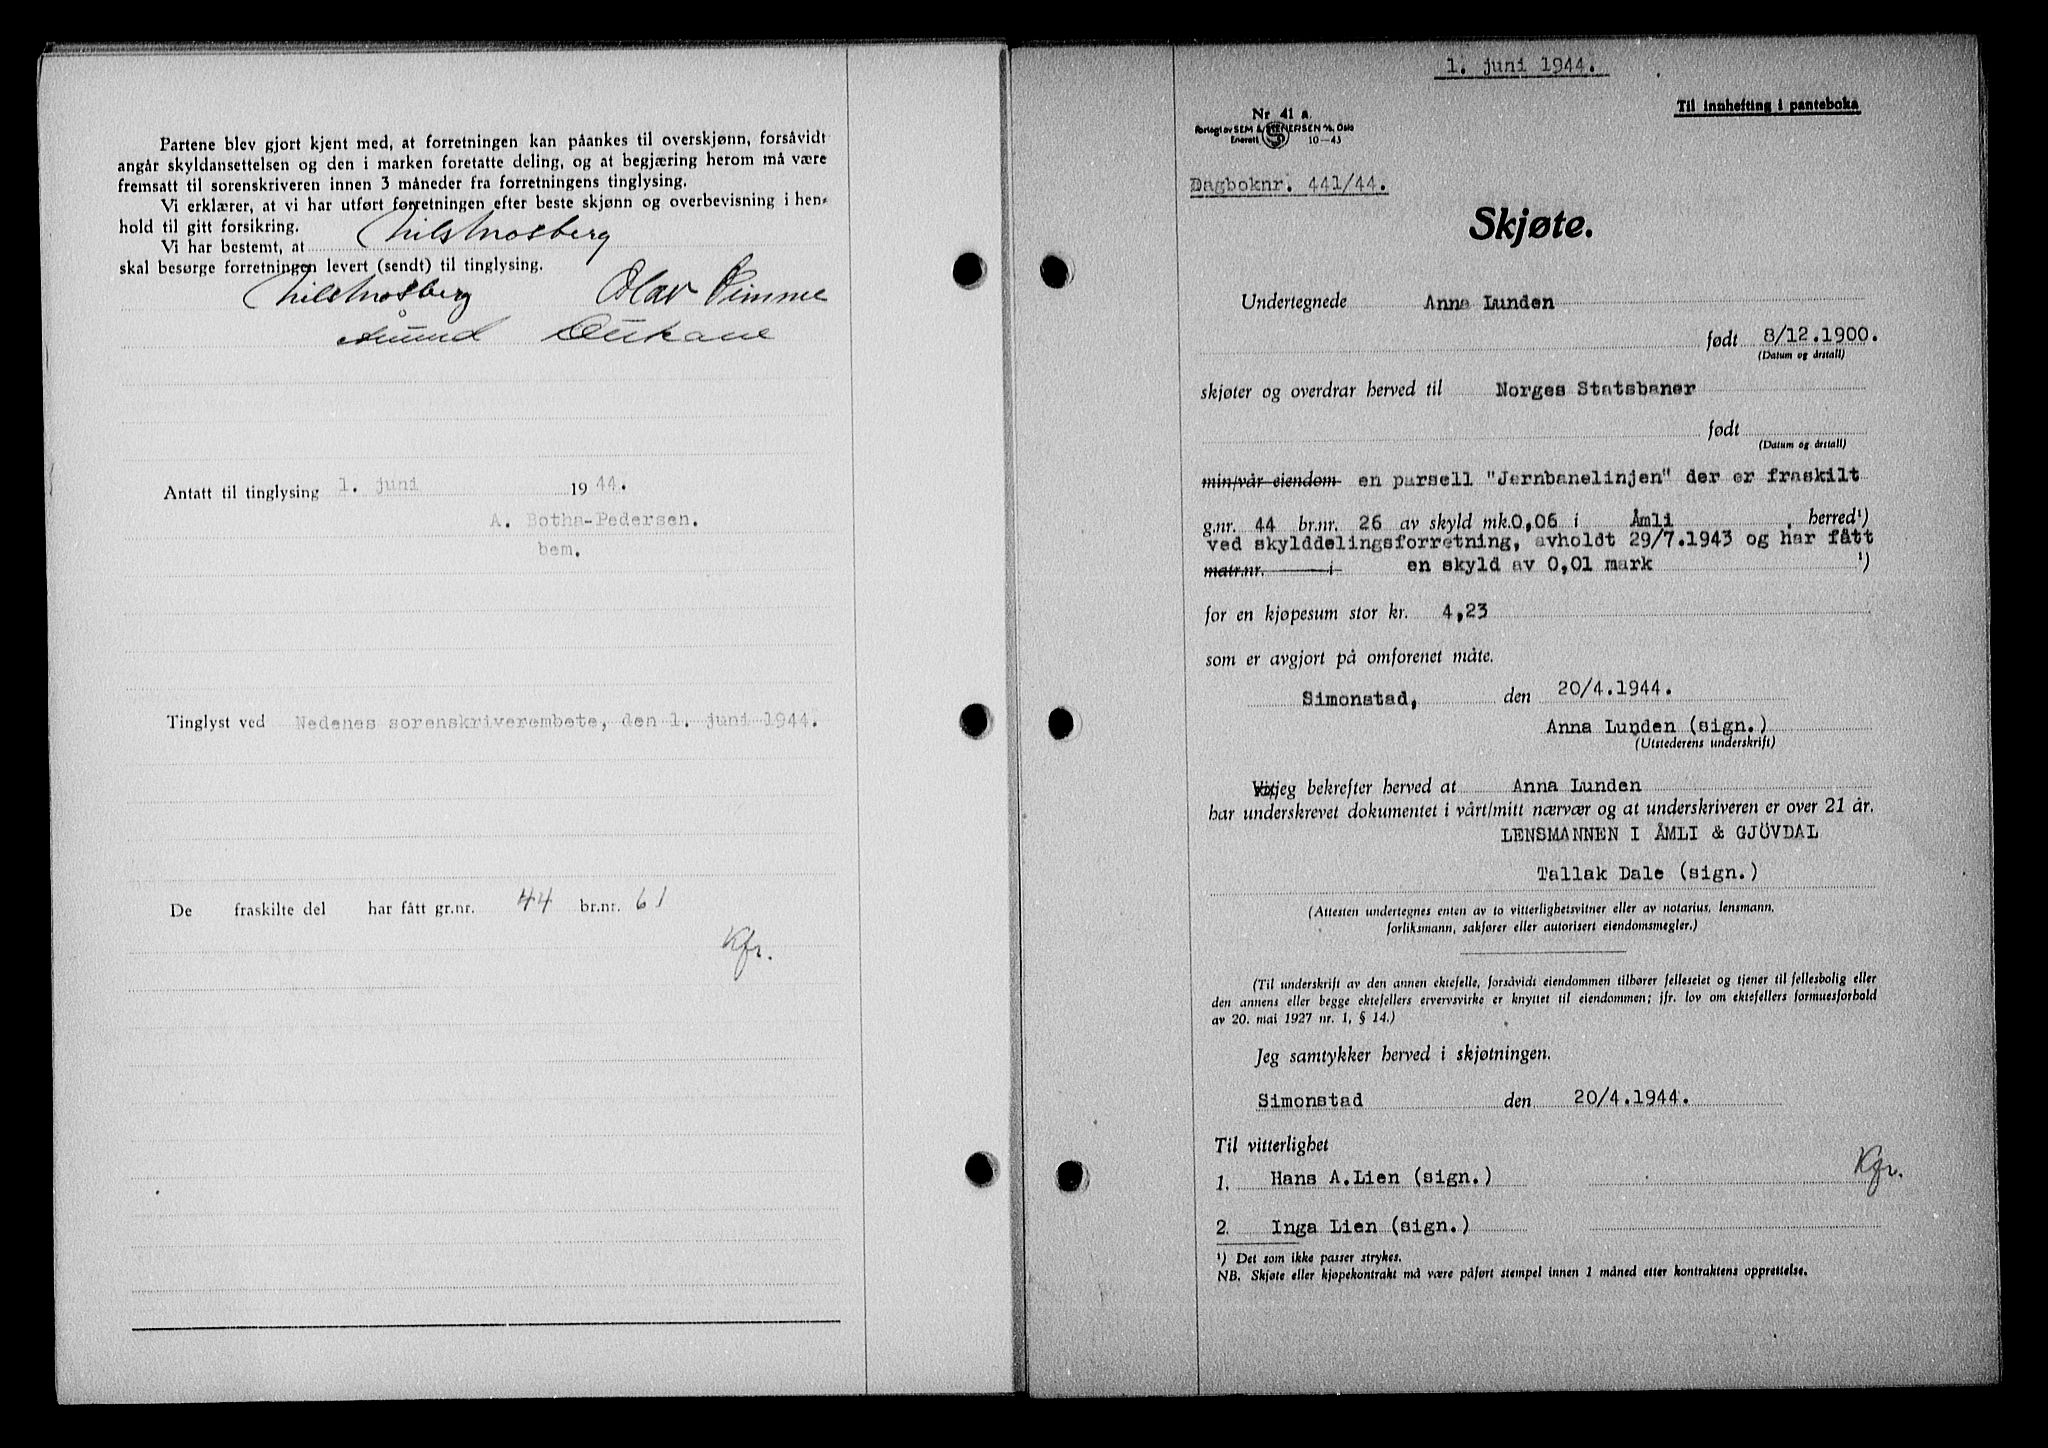 Partene blev gjort kjent med, at forretningen kan påankes til overskjønn, forsåvidt
angår skyldansettelsen og den i marken foretatte deling, og at begjæring herom må være
fremsatt til sorenskriveren innen 3 måneder fra forretningens tinglysing.
Vi erklærer, at vi har utført forretningen efter beste skjønn og overbevisning i hen-
hold til gitt forsikring.
Vi har bestemt, at Nils Mosberg
skal besørge forretningen levert (sendt) til tinglysing.
Nils Mosberg Olav Vimme
Aamund
Antatt til tinglysing 1. juni 1944.
A. Botha-Pedersen.
bem.
Tinglyst ved Nedenes sorenskriverembete, den 1. juni 1944.
De fraskilte del har fått gr.nr. 44 br.nr. 61
Kfr.
1. juni 1944.
Til innhefting i panteboka
Nr 41 a.
Forlagt av SEM & STENERSEN A/S, Oslo
Enerett 10-43
Dagboknr. 441/44.
Skjøte.
Undertegnede Anna Lunden
født 8/12.1900.
(Datum og årstall)
skjøter og overdrar herved til Norges Statsbaner
født
(Datum og årstall)
min/vår eiendom en parsell "Jernbanelinjen" der er fraskilt
g.nr. 44 br.nr. 26 av skyld mk. 0,06 i Åmli herred¹)
ved skylddelingsforretning, avholdt 29/7.1943 og har fått
matr.nr. i en skyld av 0,01 mark ¹)
for en kjøpesum stor kr. 4,23
som er avgjort på omforenet måte.
Simonstad, den 20/4.1944.
Anna Lunden (sign.)
(Utstederens underskrift)
Vi/jeg bekrefter herved at Anna Lunden
har underskrevet dokumentet i vårt/mitt nærvær og at underskriveren er over 21 år.
LENSMANNEN I ÅMLI & GJÖVDAL
Tallak Dale (sign.)
(Attesten undertegnes enten av to vitterlighetsvitner eller av notarius, lensmann,
forliksmann, sakfører eller autorisert eiendomsmegler.)
(Til underskrift av den annen ektefelle, forsåvidt eiendommen tilhører felleseiet og tjener til fellesbolig eller
den annens eller begge ektefellers ervervsvirke er knyttet til eiendommen; jfr. lov om ektefellers formuesforhold
av 20. mai 1927 nr. 1, § 14.)
Jeg samtykker herved i skjøtningen.
Simonstad den 20/4.1944.
Til vitterlighet
1. Hans A.Lien (sign.)
Kfr.
2. Inga Lien (sign.)
¹) Det som ikke passer strykes.
NB. Skjøte eller kjøpekontrakt må være påført stempel innen 1 måned etter kontraktens opprettelse.